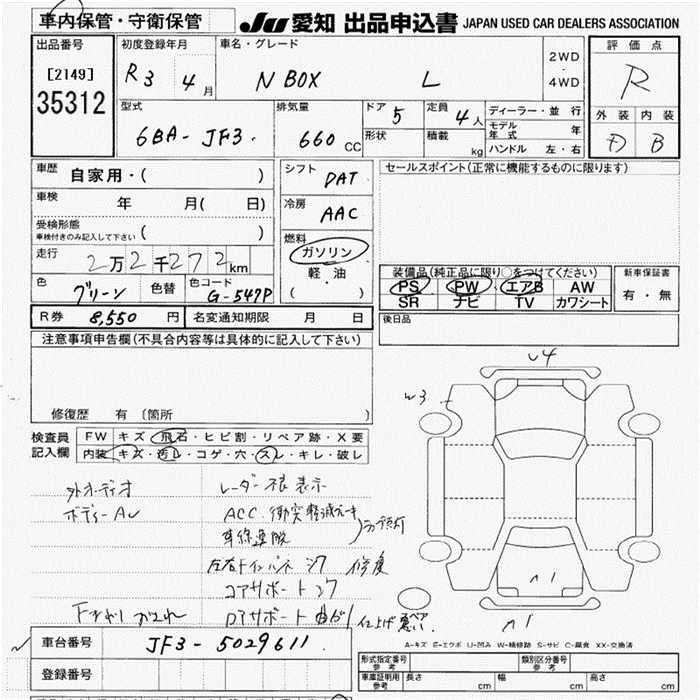 車内保管・守衛保管
JU 愛知 出品申込書 JAPAN USED CAR DEALERS ASSOCIATION
出品番号
[2149]
35312
初度登録年月
R3 4月
車名・グレード
N BOX L
2WD
・
4WD
評価点
R
外装 内装
D B
型式
6BA-JF3.
排気量
660 CC
ドア 5
形状
定員 4人
積載 kg
ディーラー・並行
モデル年式 年
ハンドル 左・右
車歴 自家用・( )
車検 年 月( 日)
受検形態
車検付きのみ記入して下さい ( )
走行 2万2千272km
色 グリーン 色替 色コード G-547P
シフト DAT
冷房 AAC
燃料
ガソリン
軽油
( )
セールスポイント(正常に機能するものに限ります)
装備品(純正品に限り○をつけてください)
PS PW エアB AW
SR ナビ TV カワシート
新車保証書
有・無
R券 8,550 円 名変通知期限 月 日
後日品
注意事項申告欄(不具合内容等は具体的に記入して下さい)
修復歴 有 〔箇所 〕
検査員記入欄
FW キズ・飛石・ヒビ割・リペア跡・X要
内装 キズ・汚レ・コゲ・穴・スレ・キレ・破レ
外オーディオ
ボディーAU
レーダー不良 表示
ACC 衝突軽減ブレーキ
車線逸脱
左右Fインパネ シワ 修復
コアサポート シワ
ロアサポート 曲がり 仕上げ悪い
U4
W3
A1
A1
スペア
A-キズ E-エクボ U-凹み W-補修跡 S-サビ C-腐食 XX-交換済
車台番号 JF3-5029611.
登録番号
形式指定番号 参考
類別区分番号 参考
車庫証明用 参考 長さ cm 幅 cm 高さ cm